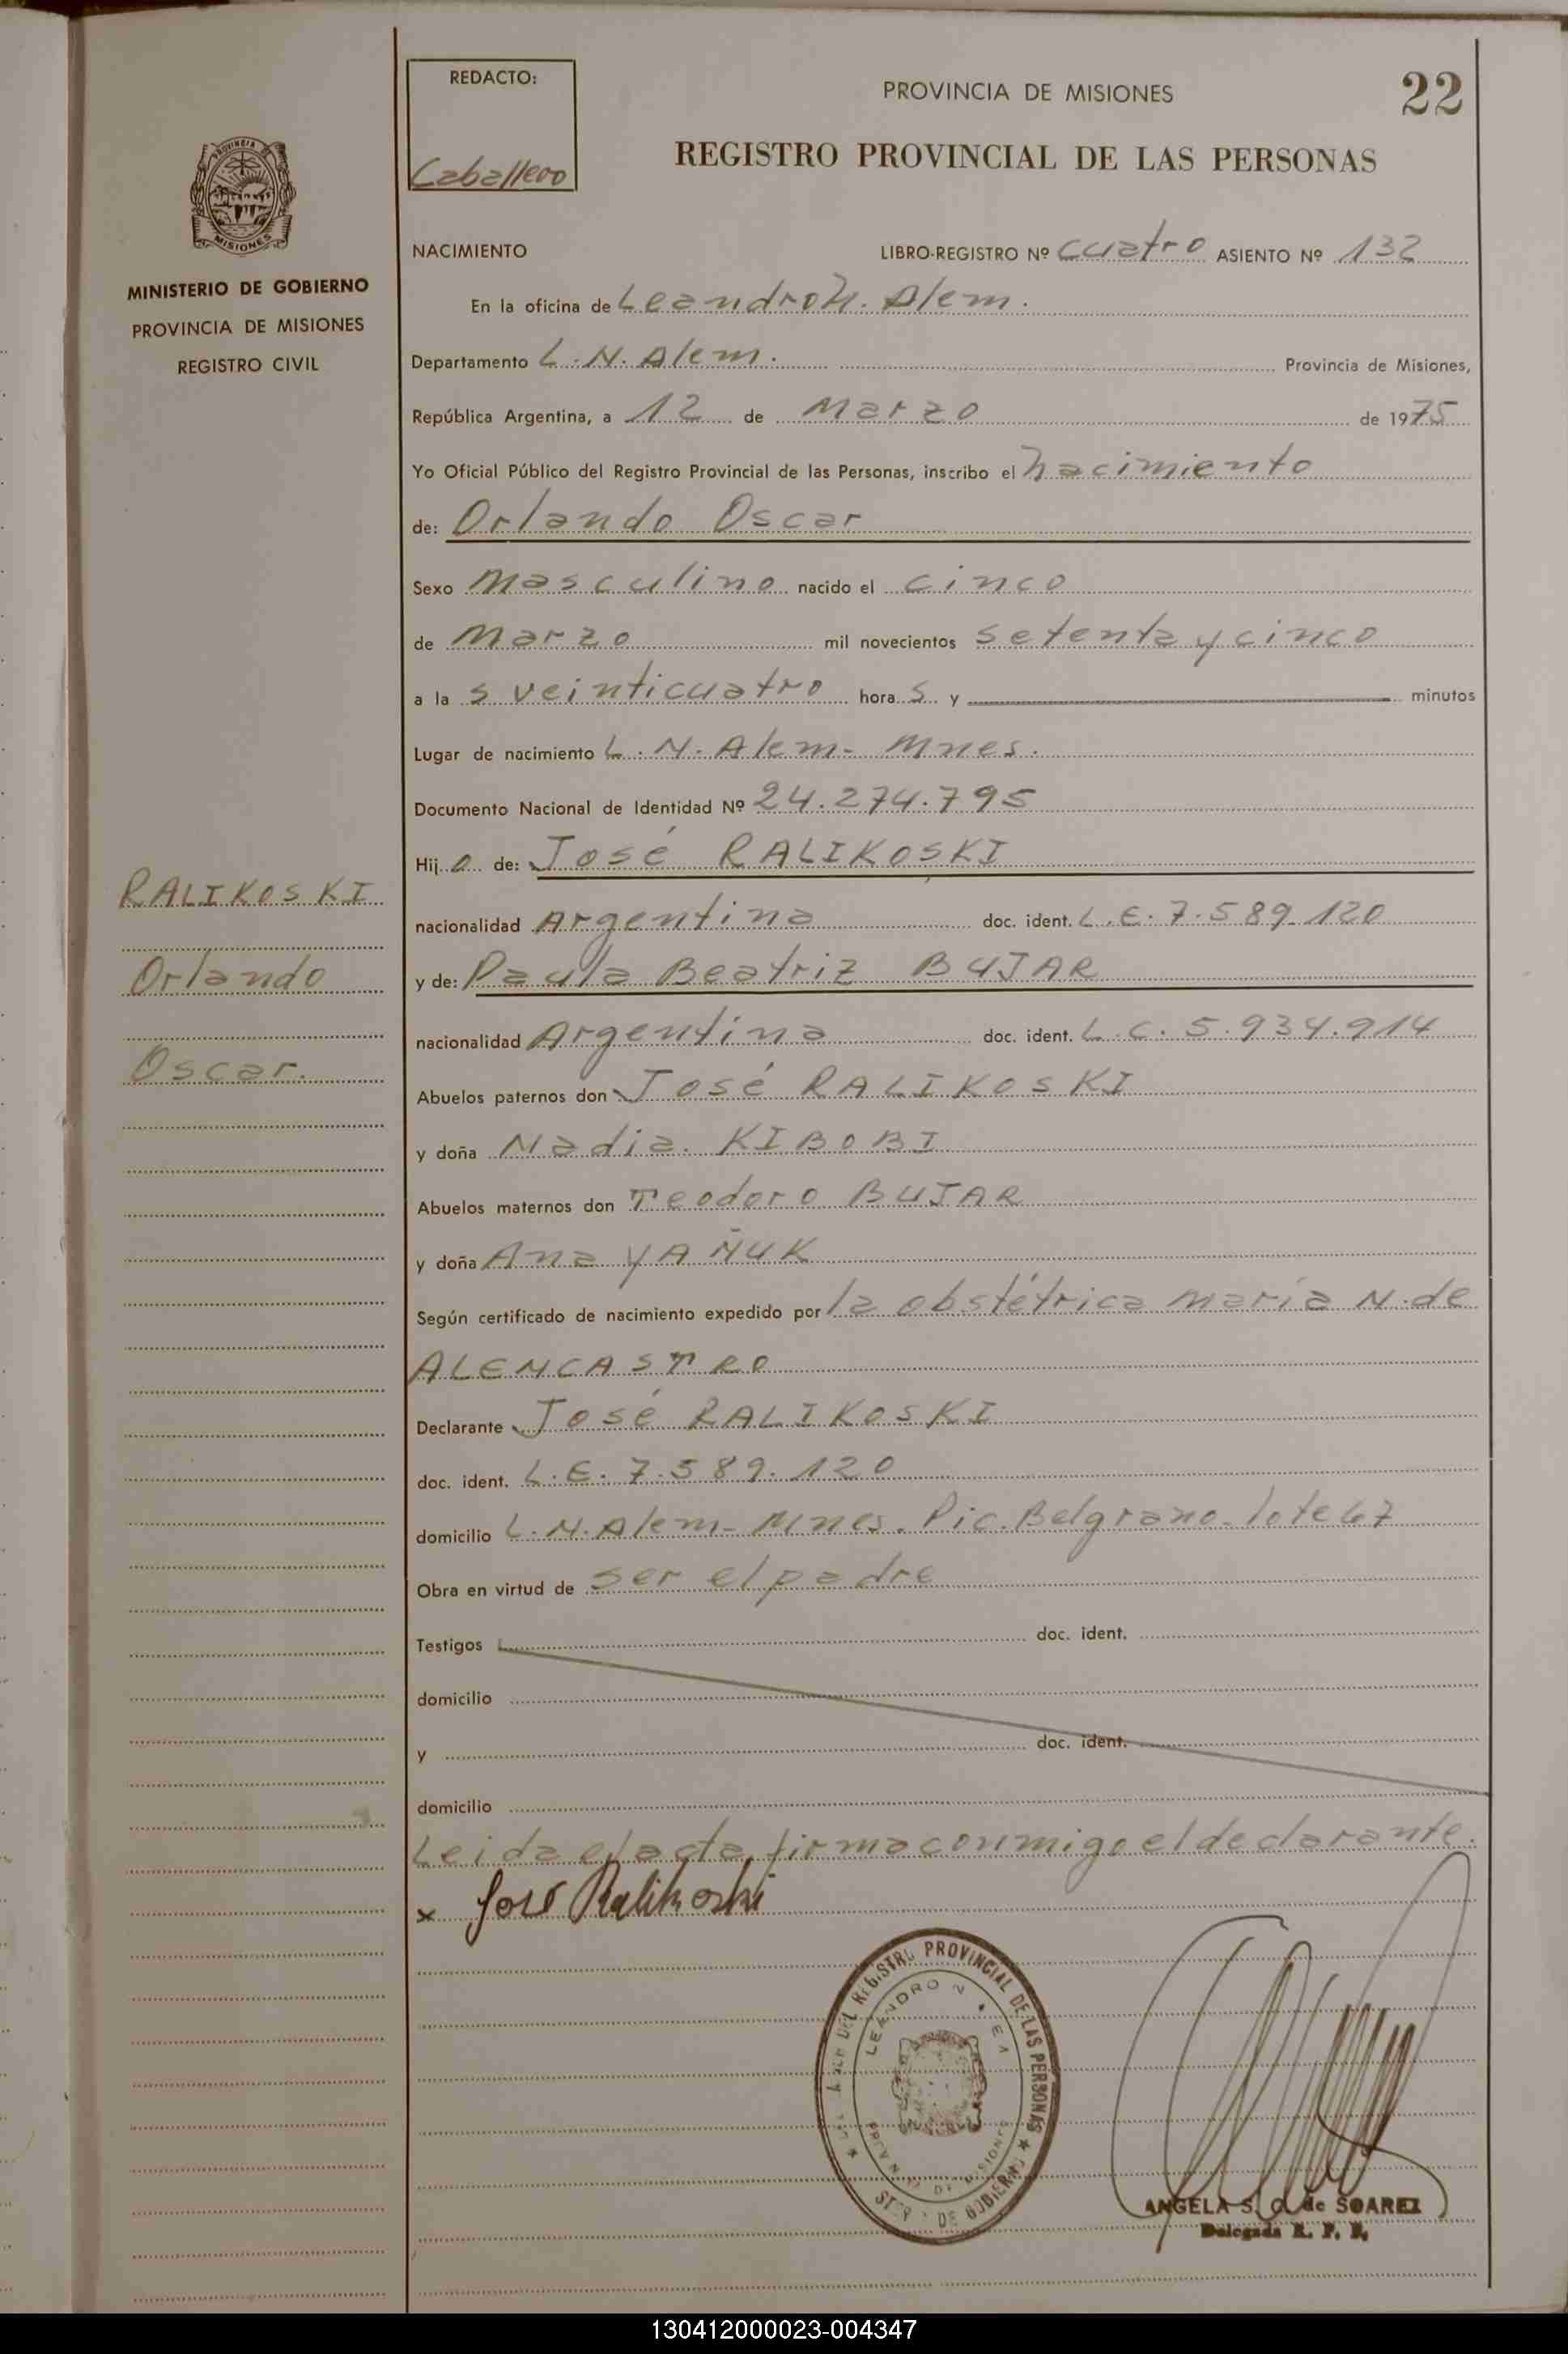 REDACTO:
Caballero
PROVINCIA DE MISIONES
22
REGISTRO PROVINCIAL DE LAS PERSONAS
MISIONES
MINISTERIO DE GOBIERNO
PROVINCIA DE MISIONES
REGISTRO CIVIL
NACIMIENTO LIBRO-REGISTRO Nº cuatro ASIENTO Nº 132
En la oficina de Leandro N. Alem.
Departamento L. N. Alem. Provincia de Misiones,
República Argentina, a 12 de Marzo de 1975
Yo Oficial Público del Registro Provincial de las Personas, inscribo el nacimiento
de: Orlando Oscar
Sexo Masculino nacido el cinco
de Marzo mil novecientos setenta y cinco
a la s veinticuatro hora s y minutos
Lugar de nacimiento L. N. Alem- Mnes.
Documento Nacional de Identidad Nº 24.274.795
Hij o de: José RALIKOSKI
nacionalidad Argentina doc. ident. L.E. 7.589.120
y de: Paula Beatriz BUJAR
nacionalidad Argentina doc. ident. L.C. 5.934.914
Abuelos paternos don José RALIKOSKI
y doña Nadia. KIBOBI
Abuelos maternos don Teodoro BUJAR
y doña Ana YAÑUK
Según certificado de nacimiento expedido por la obstétrica María N. de
ALEMCASTRO
Declarante José RALIKOSKI
doc. ident. L.E. 7.589.120
domicilio L. N. Alem- Mnes. Pic. Belgrano- lote 67
Obra en virtud de ser el padre
Testigos doc. ident.
domicilio
y doc. ident.
domicilio
Leida el acta, firma conmigo el declarante.
x José Ralikoski
RALIKOSKI
Orlando
Oscar.
DEL REGISTRO PROVINCIAL DE LAS PERSONAS
LEANDRO N
DE GOBIERNO
ANGELA S. C. de SOAREZ
Delegada R. P. P.
130412000023-004347